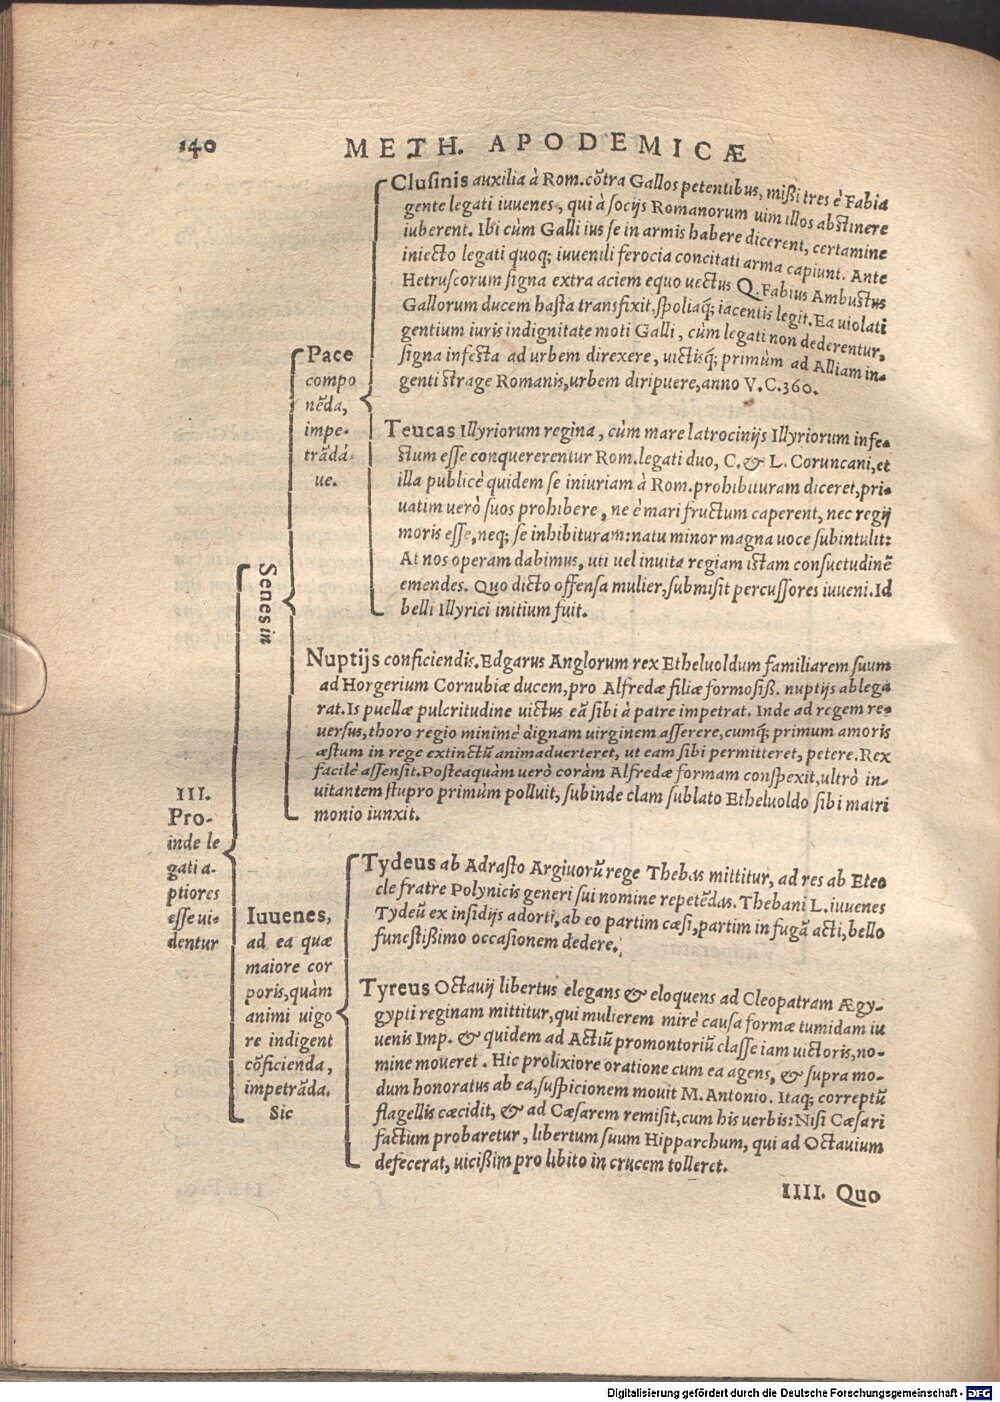 140
METH. APODEMICÆ
III.
Pro-
inde le
gati a-
ptiores
esse ui-
dentur
Senes in
Pace
compo
nẽda,
impe-
trãdá-
ue.
Clusinis auxilia à Rom. cõtra Gallos petentibus, mißi tres è Fabia
gente legati iuuenes, qui à socijs Romanorum uim illos abstinere
iuberent. Ibi cùm Galli ius se in armis habere dicerent, certamine
iniecto legati quoq; iuuenili ferocia concitati arma capiunt. Ante
Hetruscorum signa extra aciem equo uectus Q. Fabius Ambustus
Gallorum ducem hasta transfixit, spoliaq́; iacentis legit. Ea uiolati
gentium iuris indignitate moti Galli, cùm legati non dederentur,
signa infesta ad urbem direxere, uictisq́; primùm ad Alliam in-
genti strage Romanis, urbem diripuere, anno V. C. 360.
Teucas Illyriorum regina, cùm mare latrocinijs Illyriorum infe-
stum esse conquererentur Rom. legati duo, C. & L. Coruncani, et
illa publicè quidem se iniuriam à Rom. prohibituram diceret, pri-
uatim uerò suos prohibere, ne è mari fructum caperent, nec regij
moris esse, neq; se inhibituram: natu minor magna uoce subintulit:
At nos operam dabimus, uti uel inuita regiam istam consuetudinẽ
emendes. Quo dicto offensa mulier, submisit percussores iuueni. Id
belli Illyrici initium fuit.
Nuptijs conficiendis. Edgarus Anglorum rex Etheluoldum familiarem suum
ad Horgerium Cornubiæ ducem, pro Alfredæ filiæ formosiß. nuptijs ablega
rat. Is puellæ pulcritudine uictus eã sibi à patre impetrat. Inde ad regem re-
uersus, thoro regio minimè dignam uirginem asserere, cumq́; primum amoris
æstum in rege extinctũ animaduerteret, ut eam sibi permitteret, petere. Rex
facilè assensit. Posteaquàm uerò coràm Alfredæ formam conspexit, ultrò in-
uitantem stupro primùm polluit, subinde clam sublato Etheluoldo sibi matri
monio iunxit.
Iuuenes,
ad ea quæ
maiore cor
poris, quàm
animi uigo
re indigent
cõficienda,
impetrãda.
Sic
Tydeus ab Adrasto Argiuorũ rege Thebas mittitur, ad res ab Eteo
cle fratre Polynicis generi sui nomine repetẽdas. Thebani L. iuuenes
Tydeũ ex insidijs adorti, ab eo partim cæsi, partim in fugã acti, bello
funestißimo occasionem dedere.
Tyreus Octauij libertus elegans & eloquens ad Cleopatram Ægy-
gypti reginam mittitur, qui mulierem mirè causa formæ tumidam iu
uenis Imp. & quidem ad Actiũ promontoriũ classe iam uictoris, no-
mine moueret. Hic prolixiore oratione cum ea agens, & supra mo-
dum honoratus ab ea, suspicionem mouit M. Antonio. Itaq; correptũ
flagellis cæcidit, & ad Cæsarem remisit, cum his uerbis: Nisi Cæsari
factum probaretur, libertum suum Hipparchum, qui ad Octauium
defecerat, uicißim pro libito in crucem tolleret.
IIII. Quo
Digitalisierung gefördert durch die Deutsche Forschungsgemeinschaft - DFG